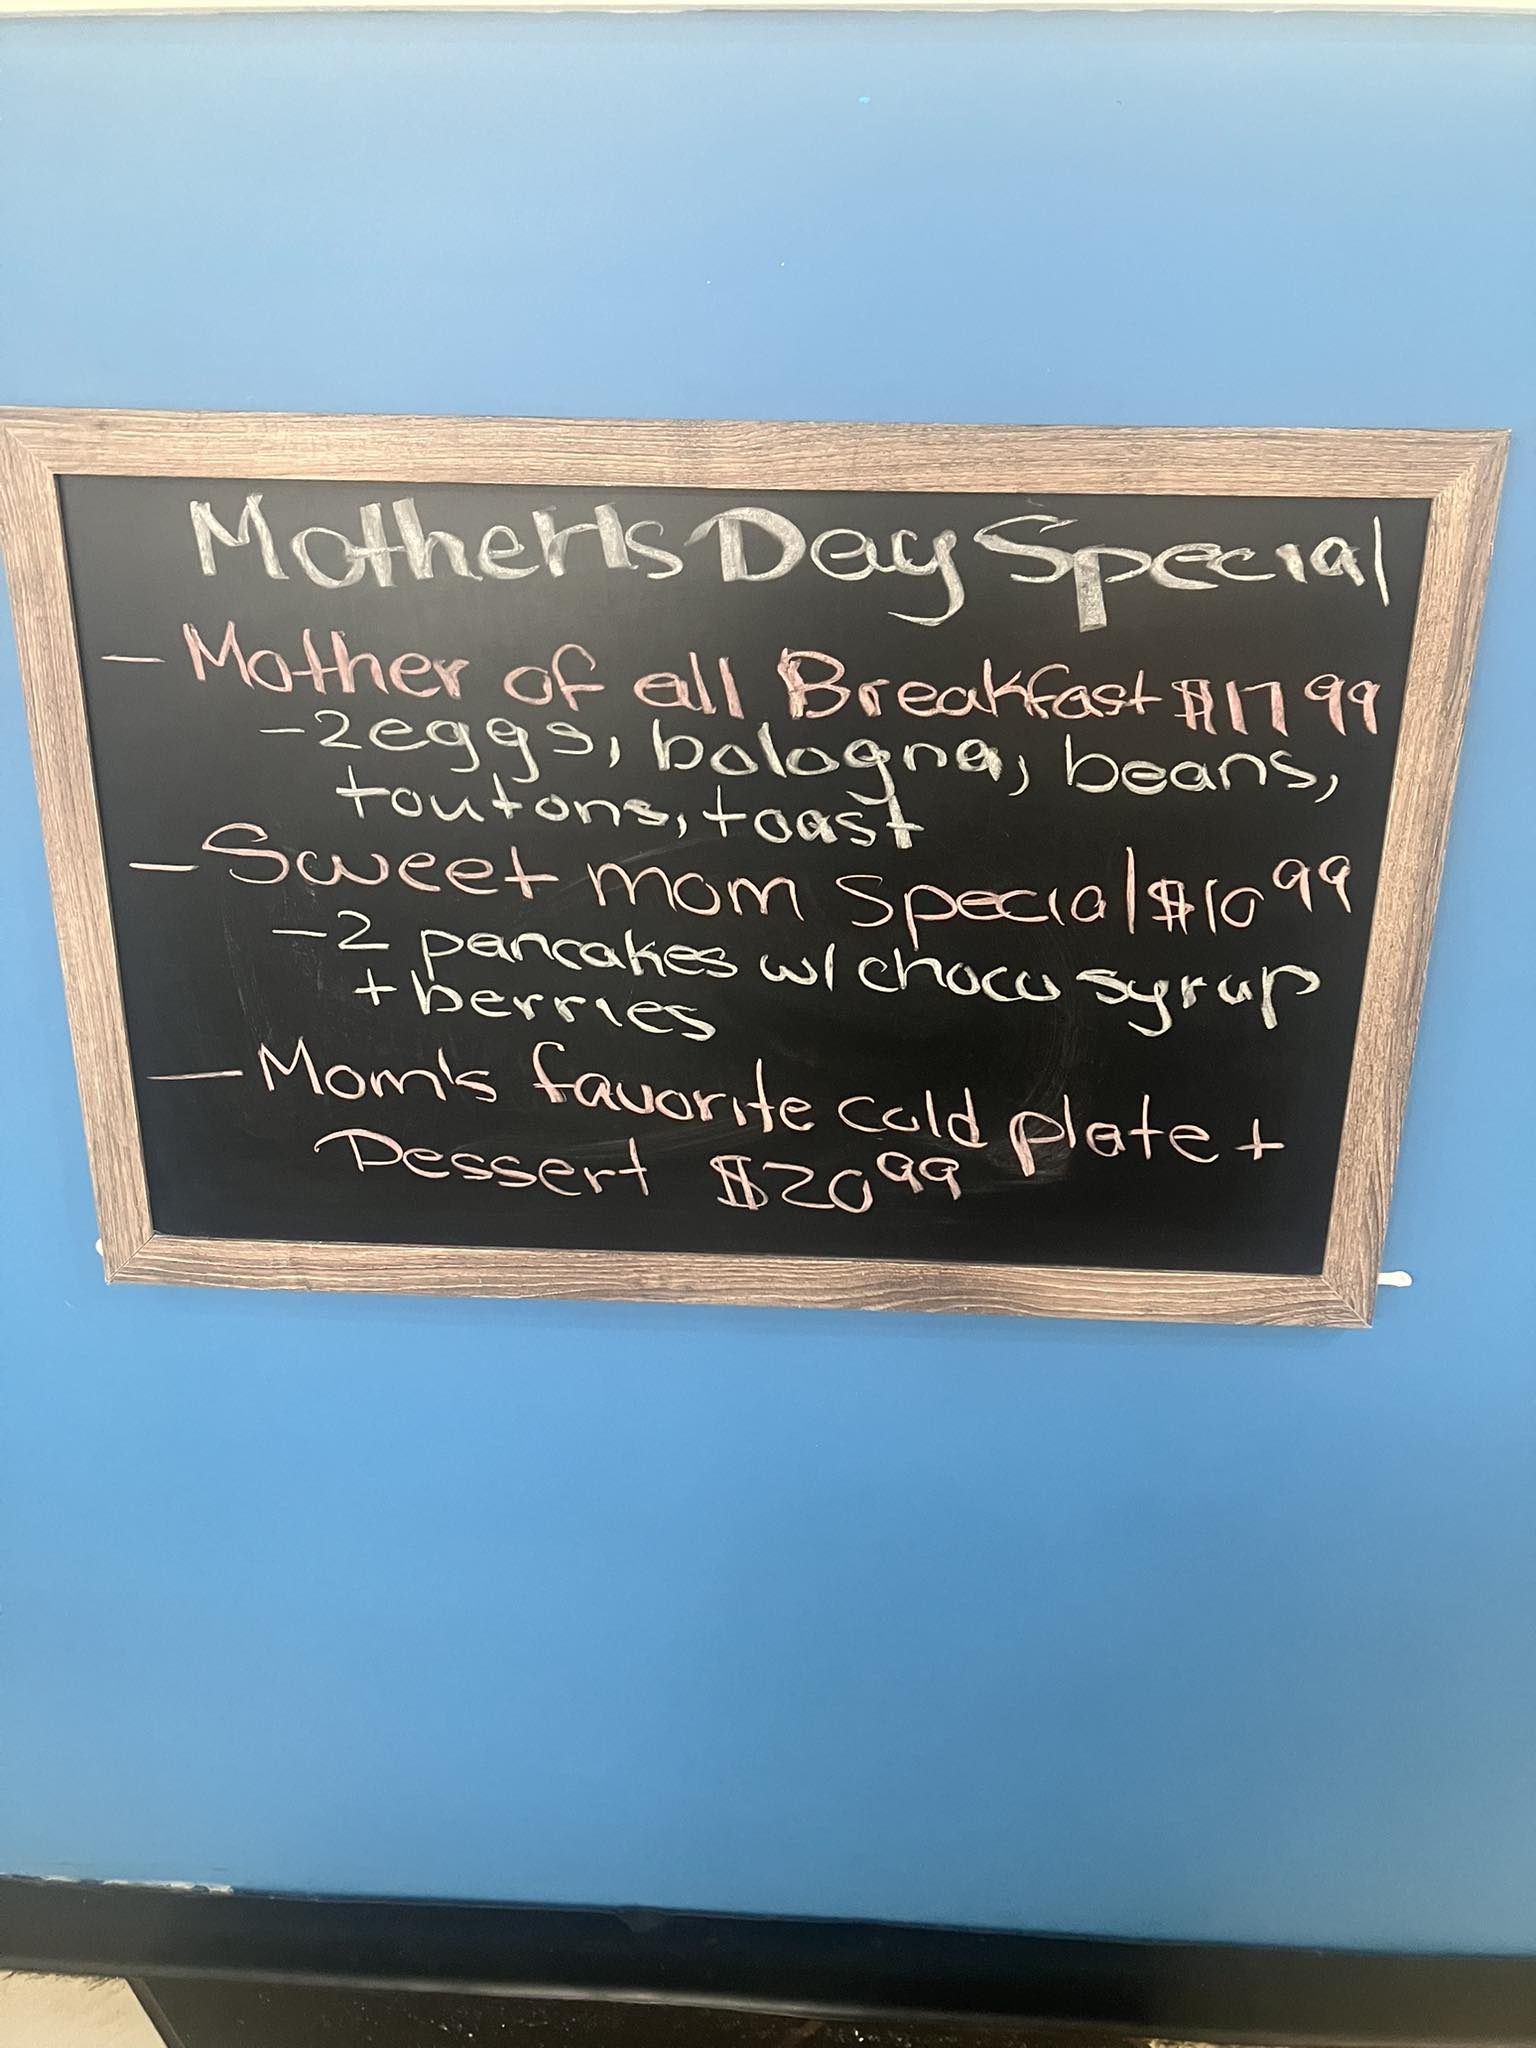 Mother's Day Special
- Mother of all Breakfast $17 99
- 2 eggs, bologna, beans,
toutons, toast
- Sweet mom special $10 99
- 2 pancakes w/ choco syrup
+ berries
- Mom's favorite cold plate +
Dessert $20 99